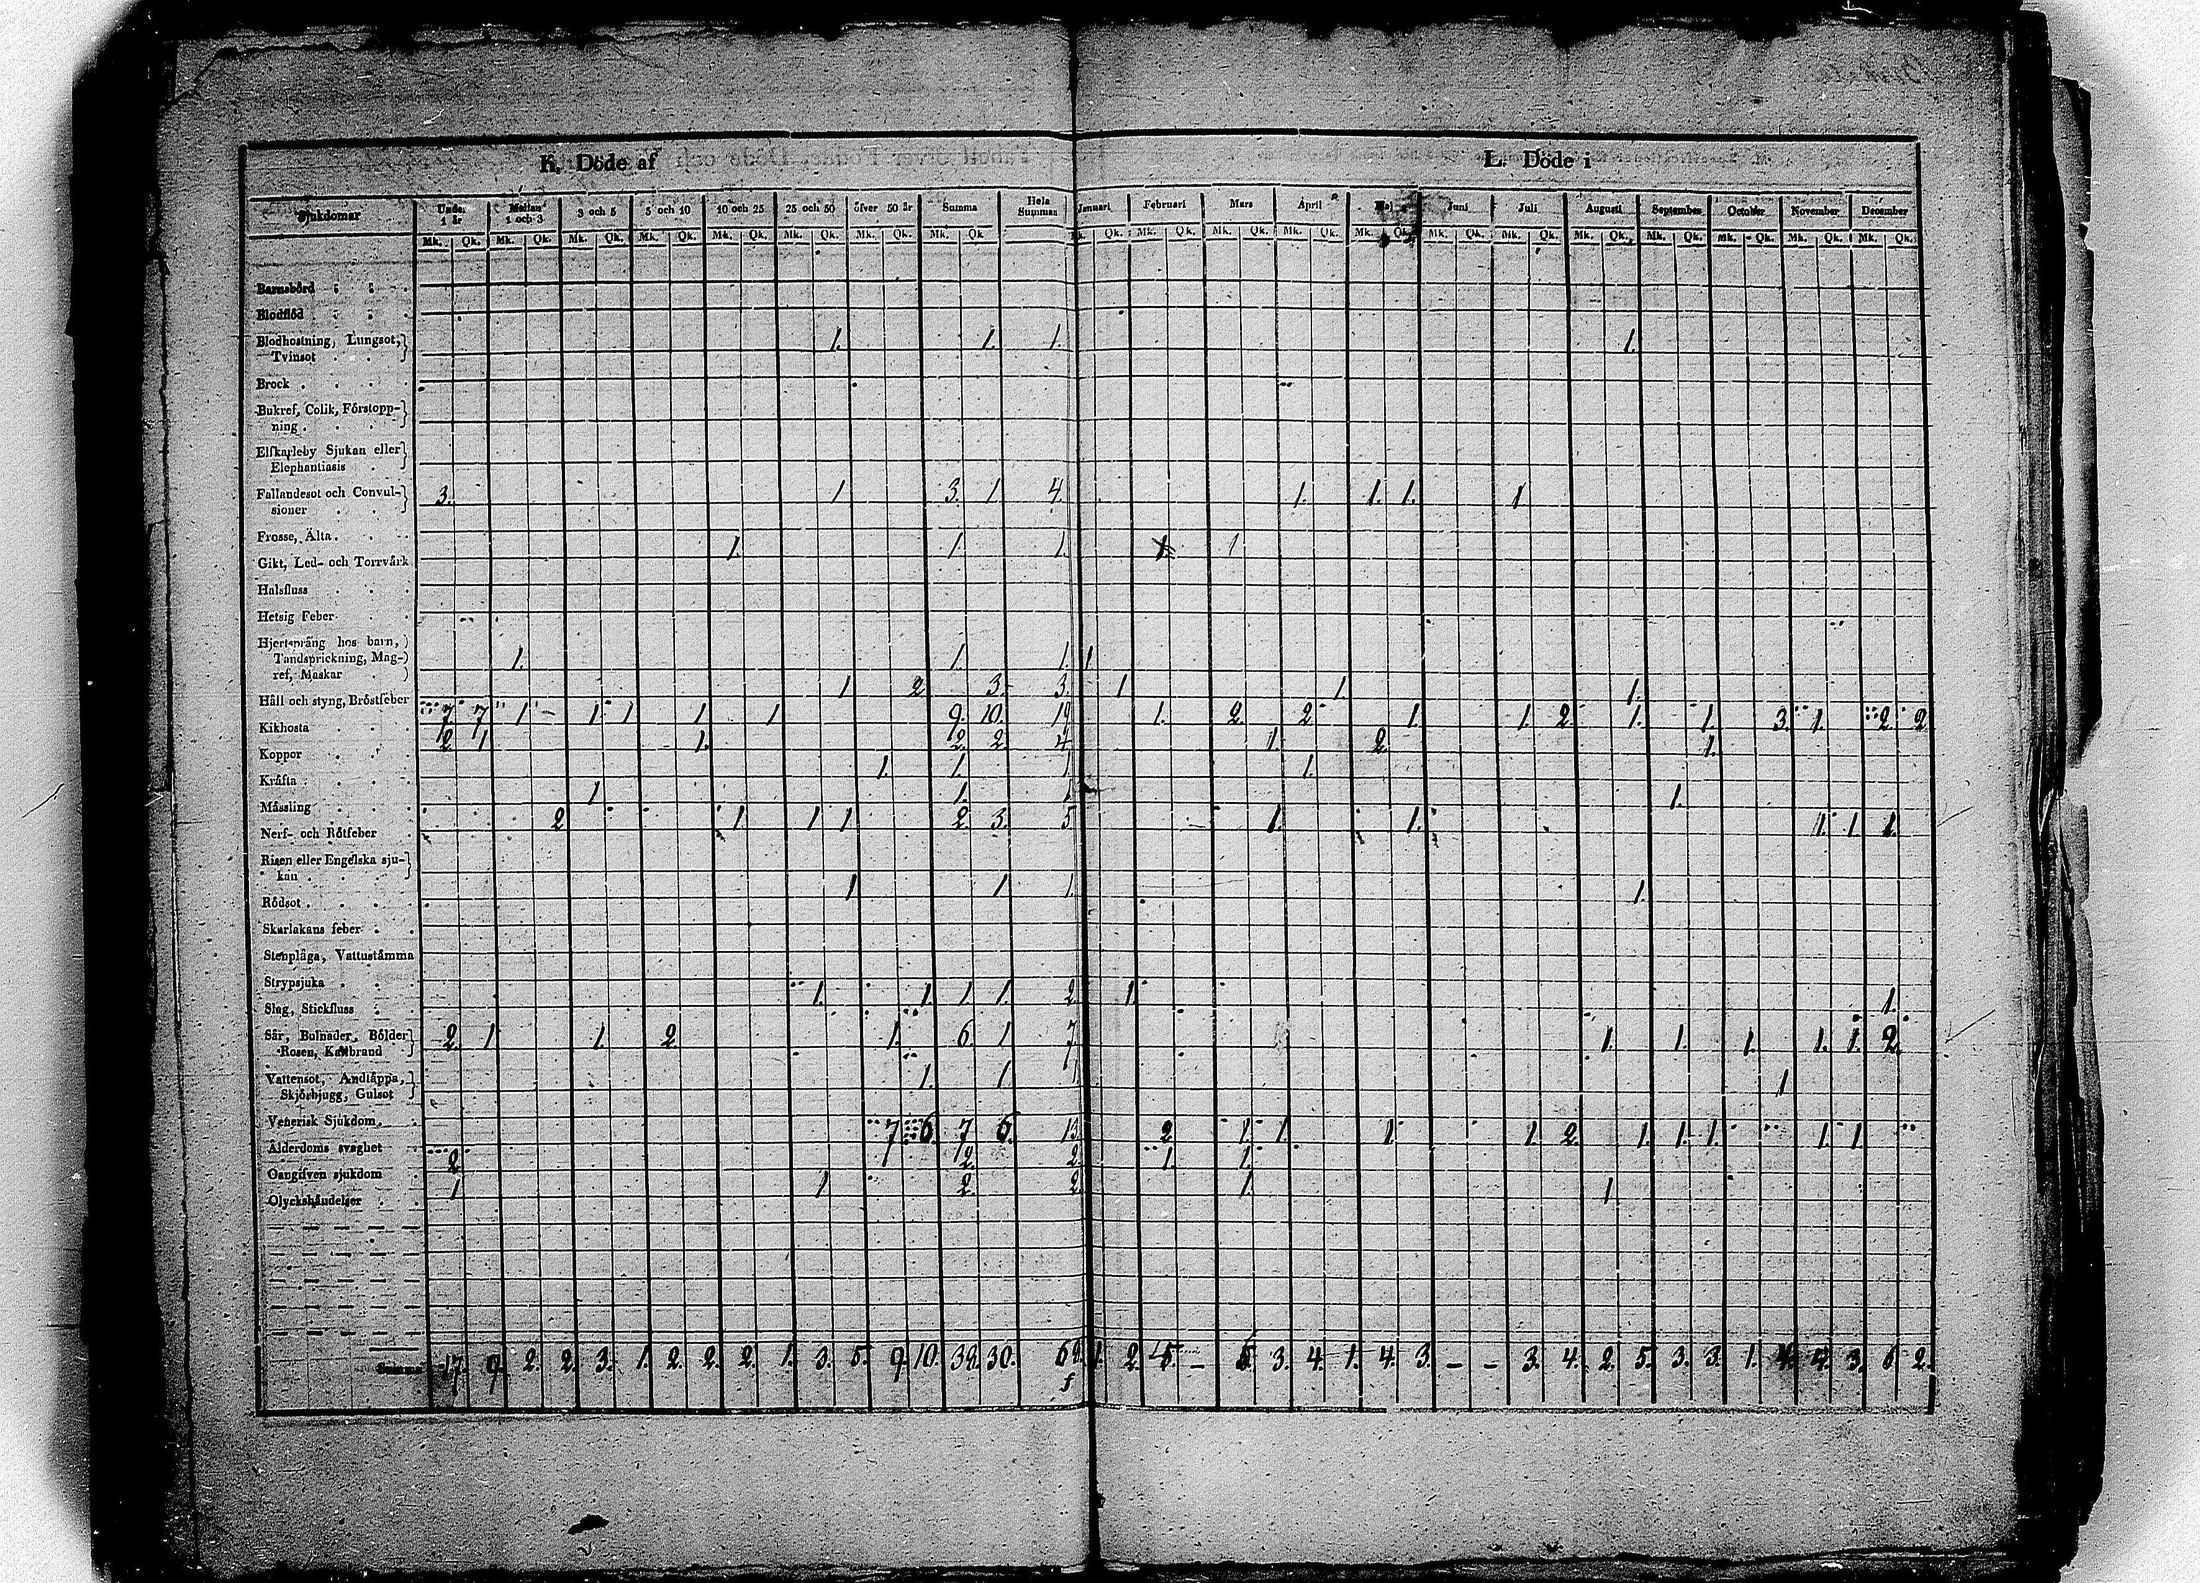 K. Döde af L. Döde i
Sjukdomar Under 1 år Mellan 1 och 3 3 och 5 5 och 10 10 och 25 25 och 50 öfver 50 år Summa Hela Summan Januari Februari Mars April Maj Juni Juli Augusti September October November December
Mk. Qk. Mk. Qk. Mk. Qk. Mk. Qk. Mk. Qk. Mk. Qk. Mk. Qk. Mk. Qk. Qk. Mk. Qk. Mk. Qk. Mk. Qk. Mk. Qk. Mk. Qk. Mk. Qk. Mk. Qk. Mk. Qk. Mk. Qk. Mk. Qk. Mk. Qk.
Barnsbörd
Blodflöd
Blodhostning, Lungsot, 1. 1. 1. 1.
Tvinsot
Brock
Bukref, Colik, Förstopp-
ning
Elfkarleby Sjukan eller
Elephantiasis
Fallandesot och Convul- 3. 1 3. 1 4. 1. 1. 1. 1
sioner
Frosse, Älta
1. 1 1. 1
Gikt, Led- och Torrvårk
Halsfluss
Hetsig Feber
Hjertsprång hos barn,
Tandsprickning, Mag- 1. 1. 1. 1
ref, Maskar
1 2 3. 3. 1 1. 1.
Håll och styng, Bröstfeber
7. 7 1 1 1 1 1 9. 10. 19 1. 2. 2 1. 1. 2. 1. 1 3. 1. 2. 2
Kikhosta
2 1 1. 2. 2. 4 1. 2. 1.
Koppor
1. 1. 1 1.
Kråfta
1 1. 1. 1.
Måssling
2 1. 1 1 2. 3. 5 1. 1. 1. 1 1.
Nerf- och Rötfeber
Risen eller Engelska sju-
kan
1 1 1 1.
Rödsot
Skarlakans feber
Stenplåga, Vattuståmma
Strypsjuka
1. 1. 1. 1. 2 1. 1.
Slag, Stickfluss
Sår, Bulnader, Bölder 2. 1 1. 2. 1. 6. 1 7 1. 1. 1. 1. 1. 2.
Rosen, Kallbrand
Vattensot, Andtåppa, 1. 1. 1 1
Skjörbjugg, Gulsot
Venerisk Sjukdom
7 6 7 6. 13 2 1. 1. 1. 1. 2. 1. 1. 1. 1. 1.
Ålderdoms svaghet
2 2. 2. 1. 1.
Oangifven sjukdom
1 1. 2. 2. 1. 1.
Olyckshåndelser
Summa 17. 9. 2. 2. 3. 1. 2. 2. 2. 1. 3. 5. 9. 10. 30. 1. 2. 5. - 3. 4. 1. 4. 3. - - 3. 4. 2. 5. 3. 3. 1. 4. 4. 3. 2.